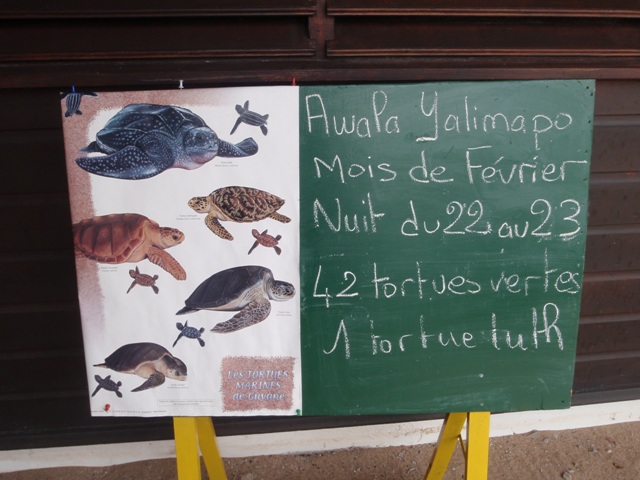 Awala Yalimapo
Mois de Février
Nuit du 22 au 23
42 tortues vertes
1 tortue luth
Les TORTUES
MARINES
de Guyane